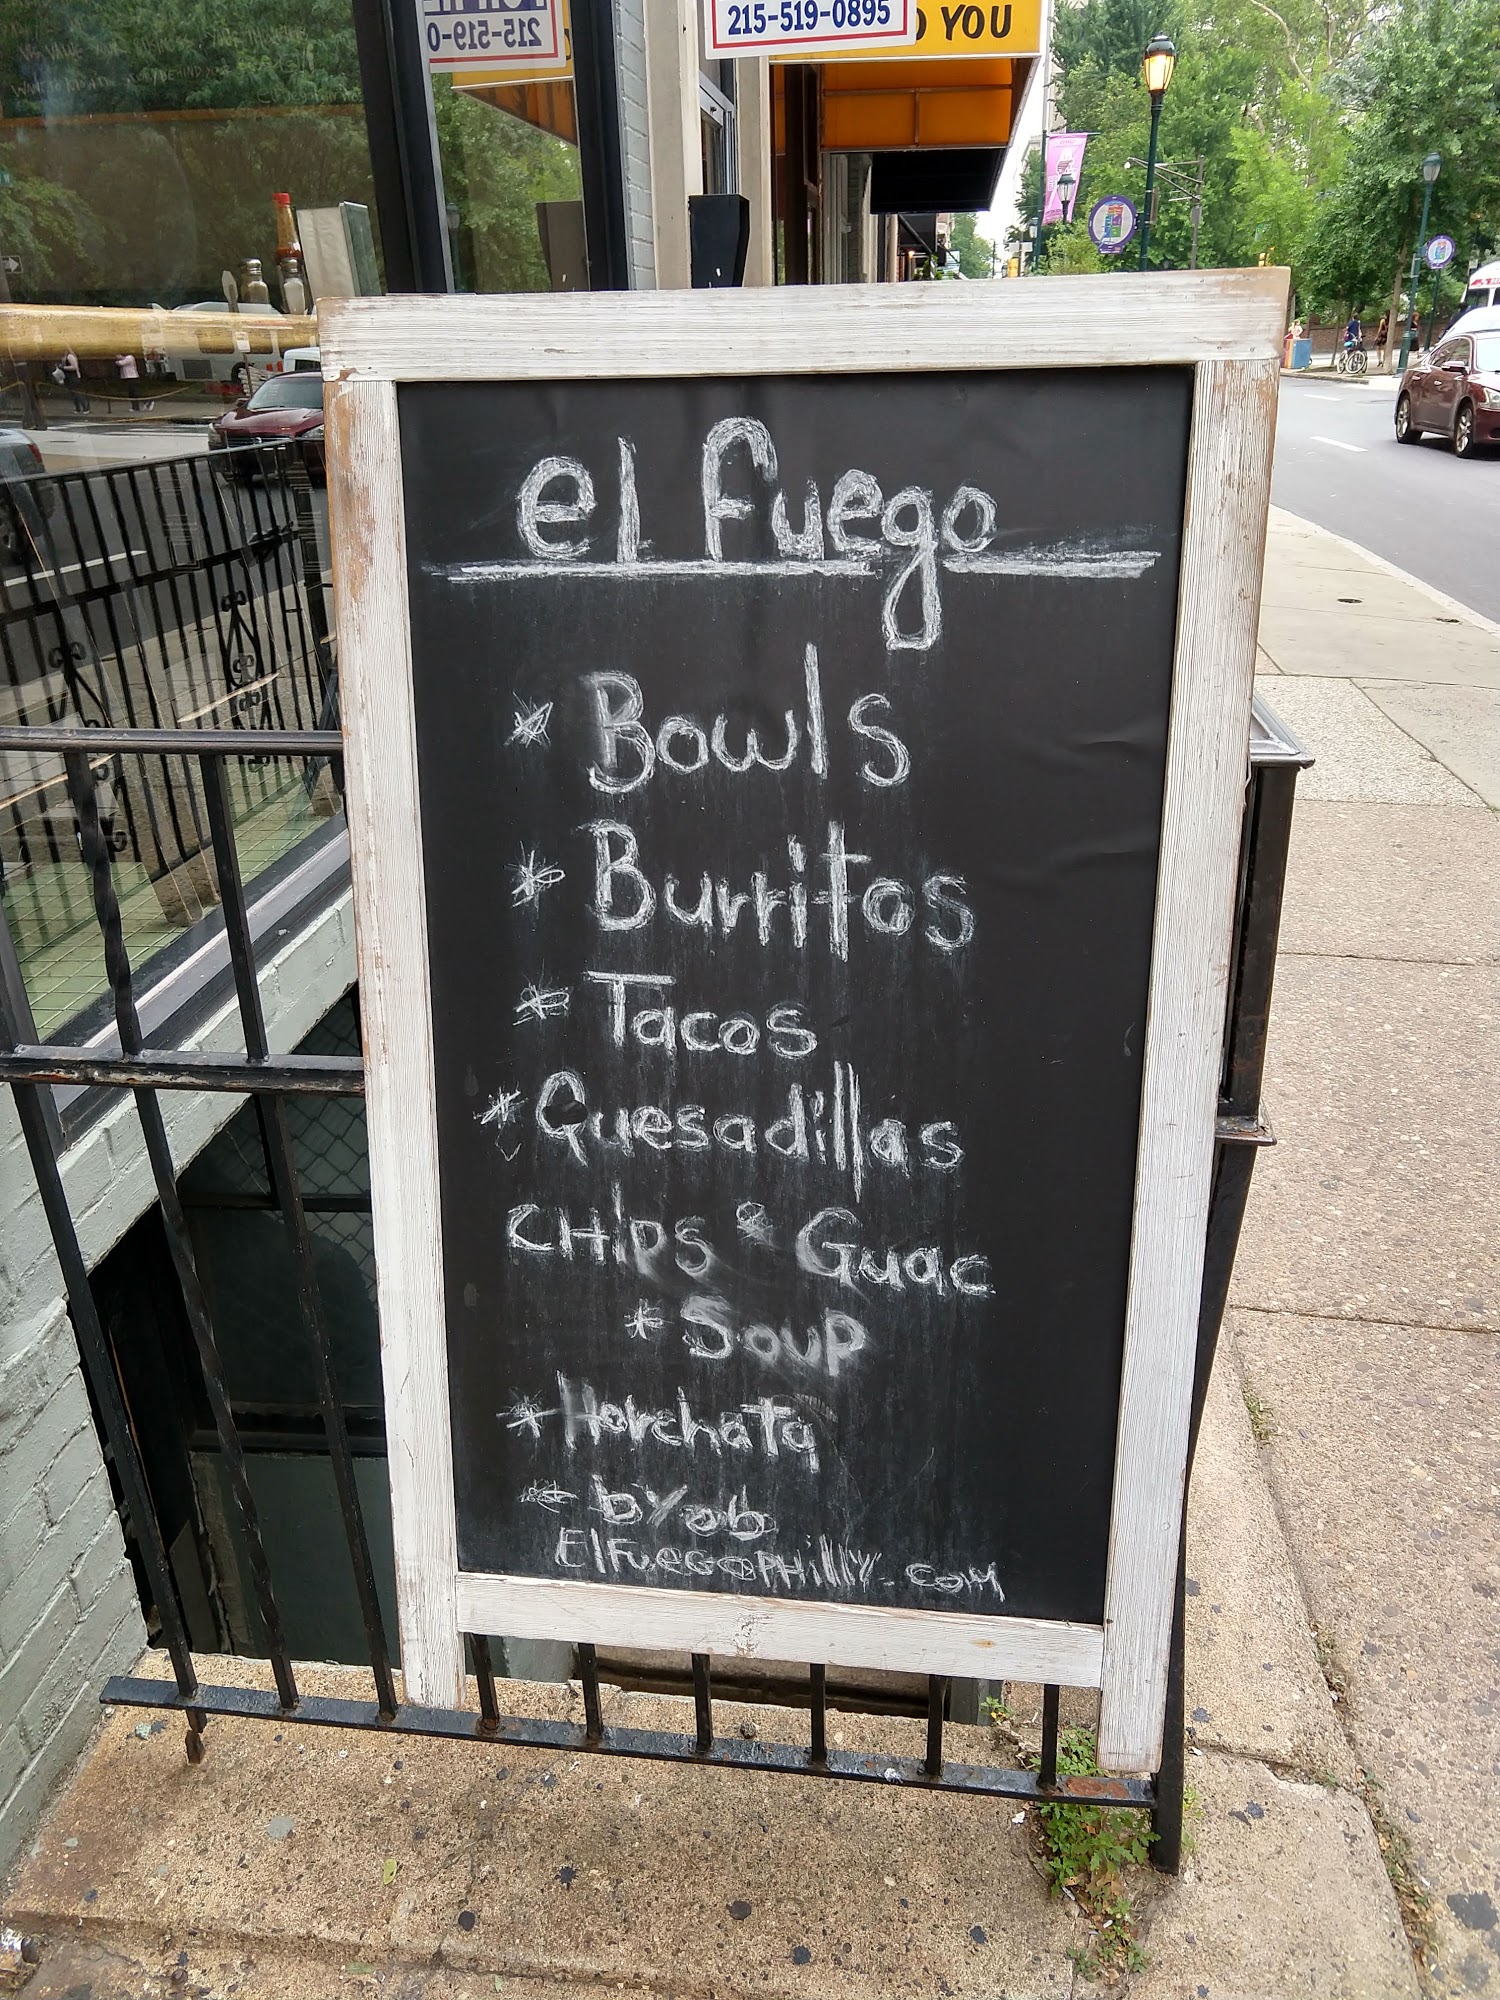 215-519-0
215-519-0895
D YOU
el Fuego
* Bowls
* Burritos
* Tacos
* Quesadillas
CHIPS & Guac
* Soup
* Horchata
* bYob
ElFuegoPHillY.com